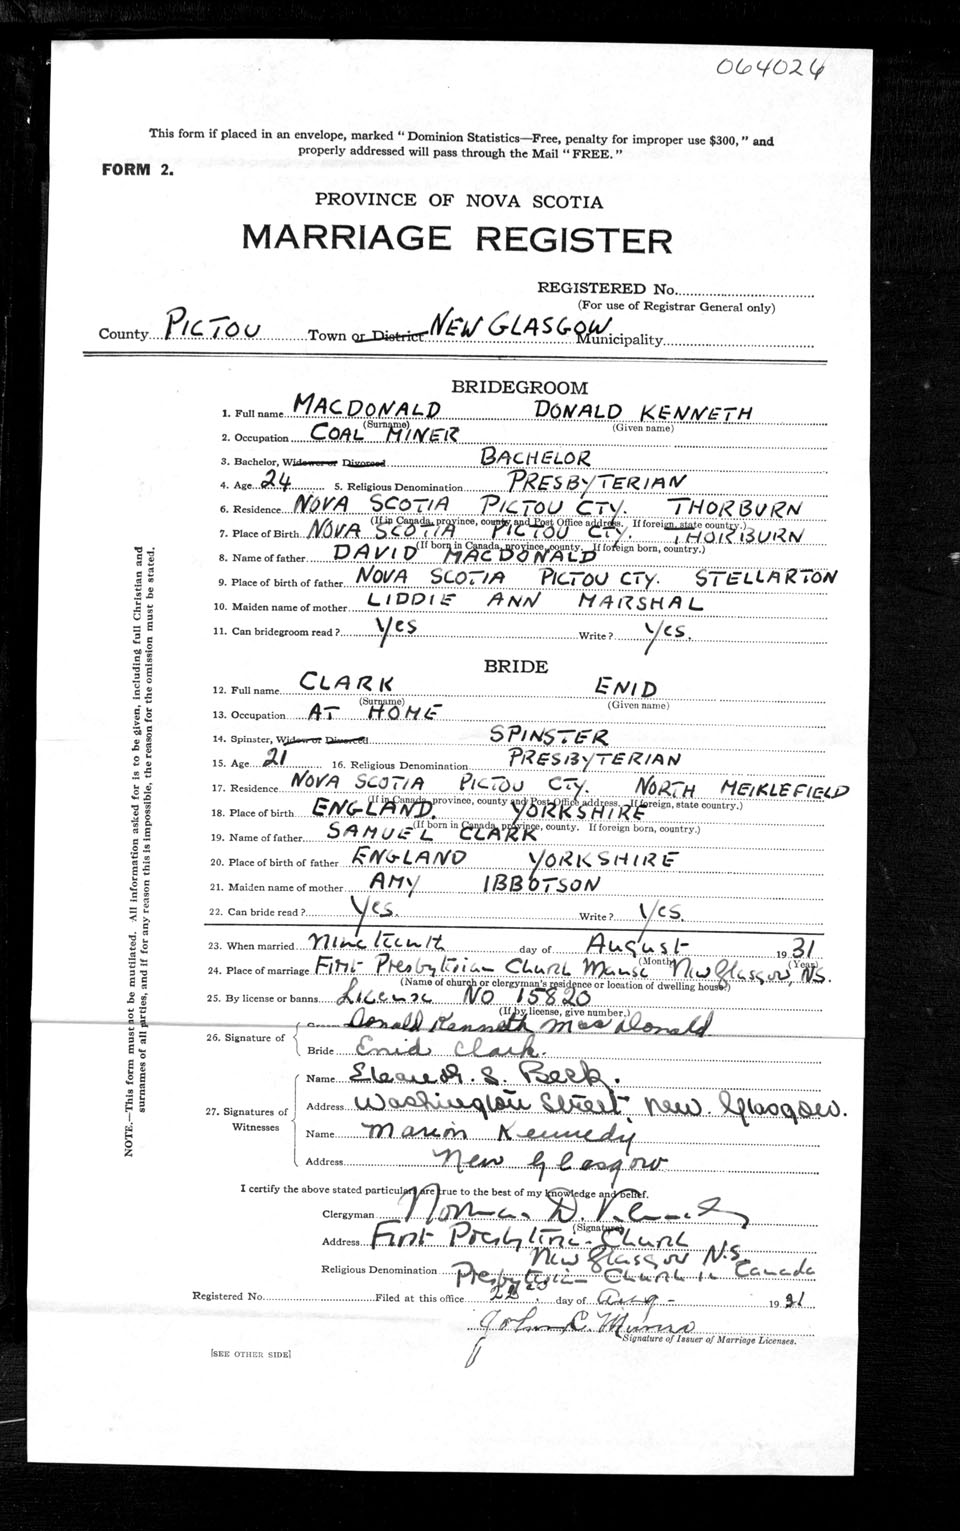 064026
This form if placed in an envelope, marked "Dominion Statistics—Free, penalty for improper use $300," and
properly addressed will pass through the Mail "FREE."
FORM 2.
PROVINCE OF NOVA SCOTIA
MARRIAGE REGISTER
REGISTERED No.
(For use of Registrar General only)
County PICTOU Town or District NEW GLASGOW Municipality
BRIDEGROOM
1. Full name MACDONALD DONALD KENNETH
(Surname) (Given name)
2. Occupation COAL MINER
3. Bachelor, Widower or Divorced BACHELOR
4. Age 24 5. Religious Denomination PRESBYTERIAN
6. Residence NOVA SCOTIA PICTOU CTY. THORBURN
(If in Canada, province, county and Post Office address. If foreign, state country.)
7. Place of Birth NOVA SCOTIA PICTOU CTY. THORBURN
(If born in Canada, province, county. If foreign born, country.)
8. Name of father DAVID MACDONALD
9. Place of birth of father NOVA SCOTIA PICTOU CTY. STELLARTON
10. Maiden name of mother LIDDIE ANN MARSHAL
11. Can bridegroom read? Yes Write? Yes.
BRIDE
12. Full name CLARK ENID
(Surname) (Given name)
13. Occupation AT HOME
14. Spinster, Widow or Divorced SPINSTER
15. Age 21 16. Religious Denomination PRESBYTERIAN
17. Residence NOVA SCOTIA PICTOU CTY. NORTH MEIKLEFIELD
(If in Canada, province, county and Post Office address. If foreign, state country.)
18. Place of birth ENGLAND. YORKSHIRE
(If born in Canada, province, county. If foreign born, country.)
19. Name of father SAMUEL CLARK
20. Place of birth of father ENGLAND YORKSHIRE
21. Maiden name of mother AMY IBBOTSON
22. Can bride read? Yes. Write? Yes.
23. When married Nineteenth day of August 1931
(Month) (Year)
24. Place of marriage First Presbyterian Church Manse New Glasgow, N.S.
(Name of church or clergyman's residence or location of dwelling house)
25. By license or banns License No 15820
(If by license, give number.)
26. Signature of
Groom Donald Kenneth MacDonald
Bride Enid Clark.
27. Signatures of Witnesses
Name S. Beck.
Address Washington Street New Glasgow.
Name Marion Kennedy
Address New Glasgow
I certify the above stated particulars are true to the best of my knowledge and belief.
Clergyman Norman D.
(Signature)
Address First Presbyterian Church
New Glasgow N.S.
Religious Denomination Presbyterian Church in Canada
Registered No. Filed at this office 22 day of Aug - 1931
John C. Munro
Signature of Issuer of Marriage Licenses.
[SEE OTHER SIDE]
NOTE.—This form must not be mutilated. All information asked for is to be given, including full Christian and
surnames of all parties, and if for any reason this is impossible, the reason for the omission must be stated.